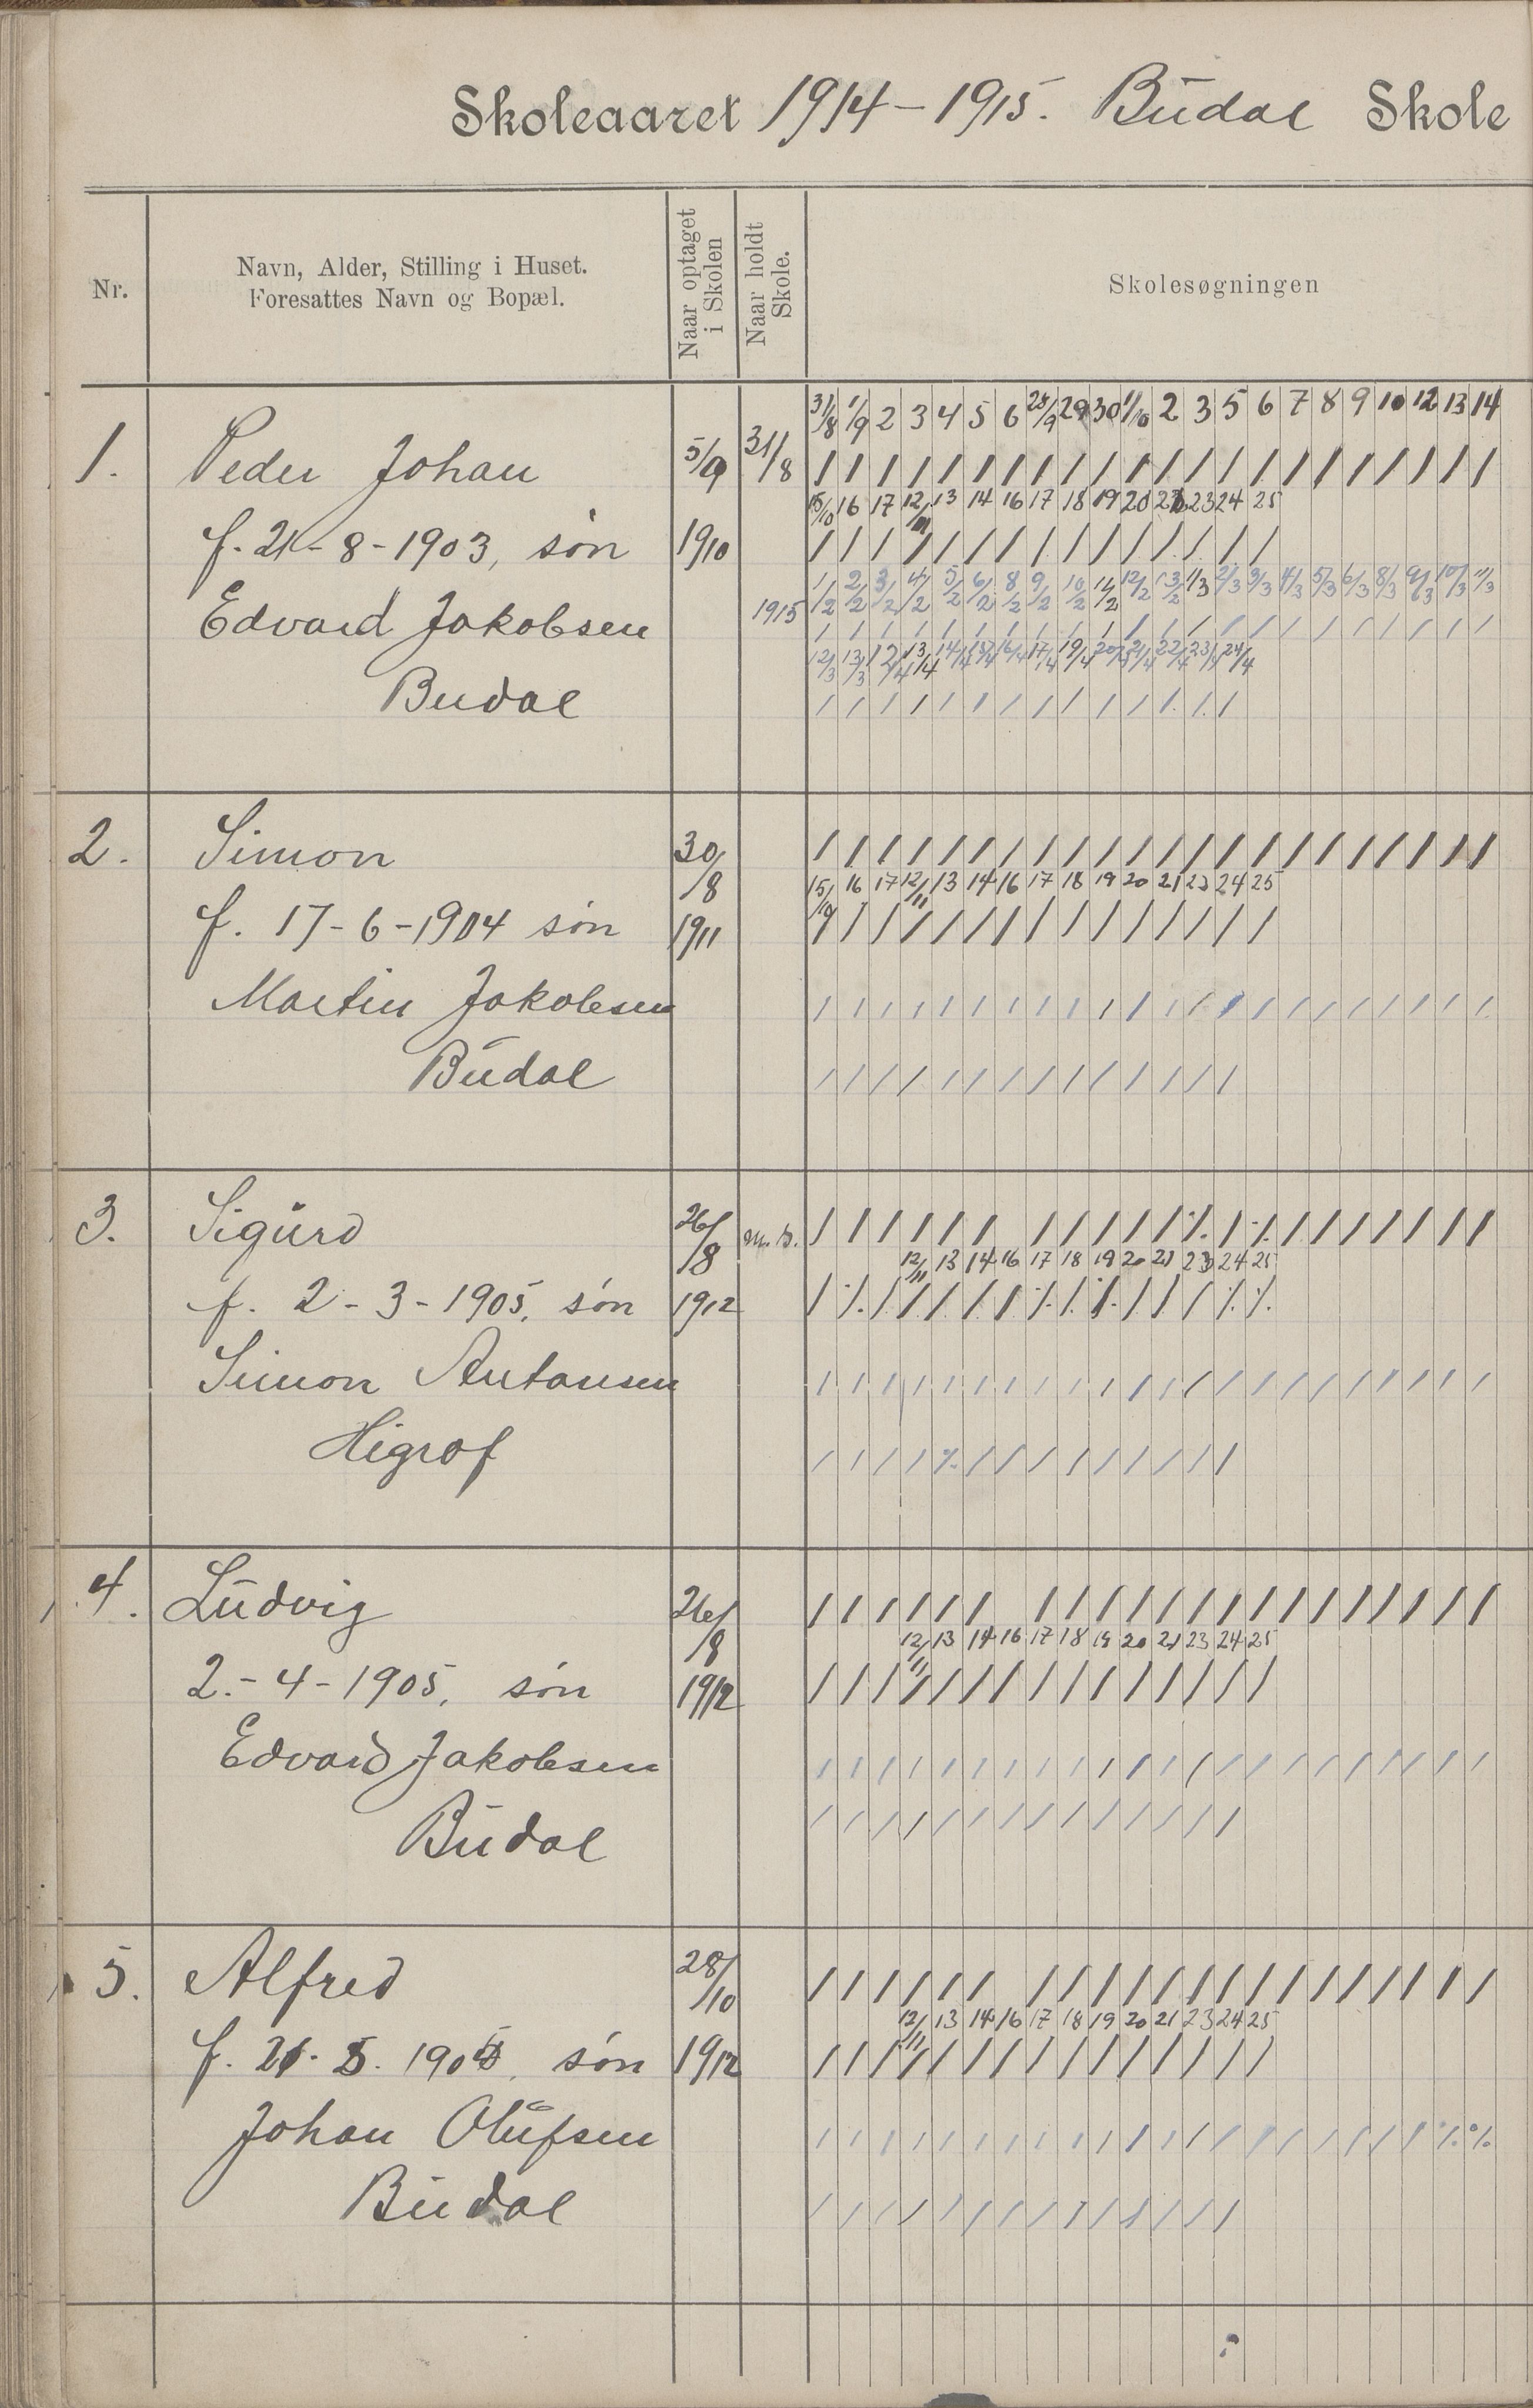 Skoleaaret 1914-1915. Budal Skole
Nr.
Navn, Alder, Stilling i Huset.
Foresattes Navn og Bopæl.
Naar optaget
i Skolen
Naar holdt
Skole.
Skolesøgningen
31/8 1/9 2 3 4 5 6 28/9 29 30 1/10 2 3 5 6 7 8 9 10 12 13 14
1. Peder Johan 5/9 31/8 / / / / / / / / / / / / / / / / / / / / / /
15/10 16 17 12/11 13 14 16 17 18 19 20 21 23 24 25
f. 21-8-1903, søn 1910 / / / / / / / / / / / / / / /
1/2 2/2 3/2 4/2 5/2 6/2 8/2 9/2 10/2 11/2 12/2 13/2 1/3 2/3 3/3 4/3 5/3 6/3 8/3 9/3 10/3 11/3
Edvard Jakobsen 1915 / / / / / / / / / / / / / / / / / / / / / /
12/3 13/3 12/4 13/4 14/4 15/4 16/4 17/4 19/4 20/4 21/4 22/4 23/4 24/4
Budal / / / / / / / / / / / / / /
2. Simon 30/8 / / / / / / / / / / / / / / / / / / / / / /
15/10 16 17 12/11 13 14 16 17 18 19 20 21 23 24 25
f. 17-6-1904 søn 1911 / / / / / / / / / / / / / / /
Martin Jakobsen / / / / / / / / / / / / / / / / / / / / / /
Budal / / / / / / / / / / / / / /
3. Sigurd 26/8 m. s. / / / / / / / / / / / ⁒ / ⁒ / / / / / / /
12/11 13 14 16 17 18 19 20 21 23 24 25
f. 2-3-1905, søn 1912 / ⁒ / / / / / ⁒ / ⁒ / / / ⁒ ⁒
Simon Antonsen / / / / / / / / / / / / / / / / / / / / / /
Higrof / / / / ⁒ / / / / / / / / /
4. Ludvig 26/8 / / / / / / / / / / / / / / / / / / / / /
12/11 13 14 16 17 18 19 20 21 23 24 25
2.-4-1905, søn 1912 / / / / / / / / / / / / / / /
Edvard Jakobsen / / / / / / / / / / / / / / / / / / / / / /
Budal / / / / / / / / / / / / / /
5. Alfred 28/10 / / / / / / / / / / / / / / / / / / / / /
12/11 13 14 16 17 18 19 20 21 23 24 25
f. 21. 5. søn 1912 / / / / / / / / / / / / / / /
Johan Olufsen / / / / / / / / / / / / / / / / / / / / ⁒ ⁒
Budal / / / / / / / / / / / / / /